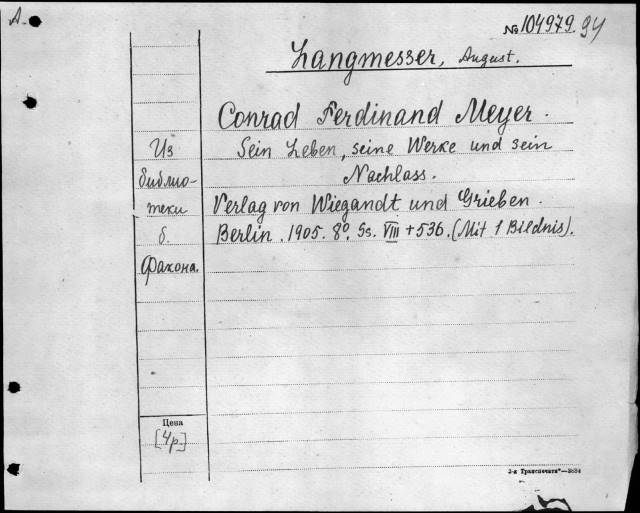 А.
№ 104979. 94
Langmesser, August.
Conrad Ferdinand Meyer.
Sein Leben, seine Werke und sein
Nachlass.
Verlag von Wiegandt und Grieben.
Berlin. 1905. 8°. Ss. VIII + 536. (Mit 1 Bildnis).
Из
библио-
теки
б.
Факона.
Цена
[4р.]
3-я Транспечати"—3834